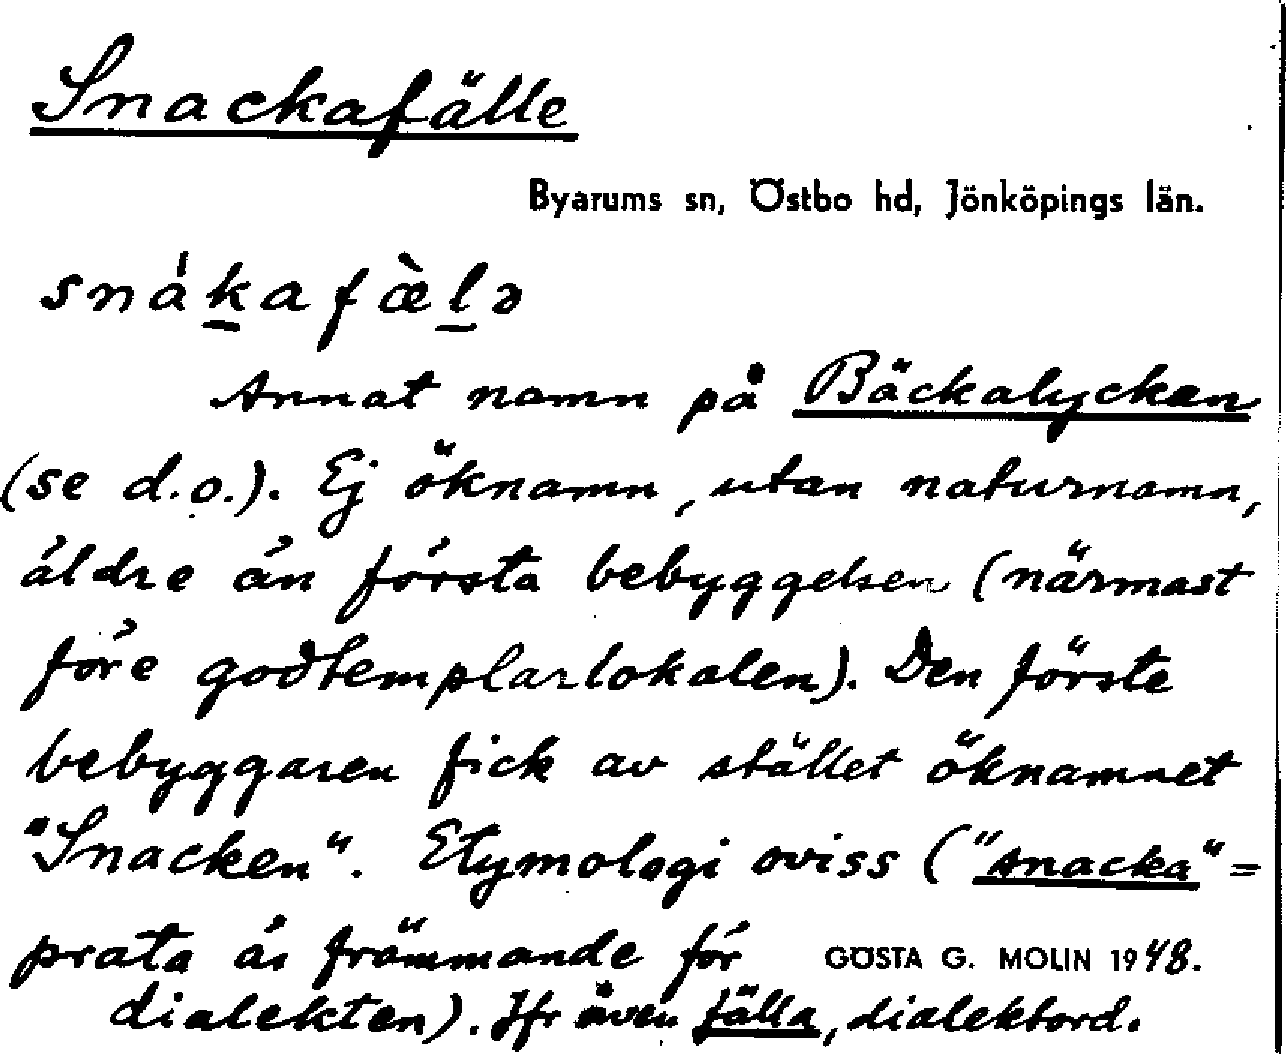 Snackafälle
Byarums sn, Östbo hd, Jönköpings län.
snákafæ̀lə
Annat namn på Bäckalycken
(se d.o.). Ej öknamn, utan naturnamn,
äldre än första bebyggelsen (närmast
före godtemplarlokalen). Den förste
bebyggaren fick av stället öknamnet
"Snacken". Etymologi oviss ("snacka" =
prata är främmande för
dialekten). Jfr även fälla, dialektord.
GÖSTA G. MOLIN 1948.